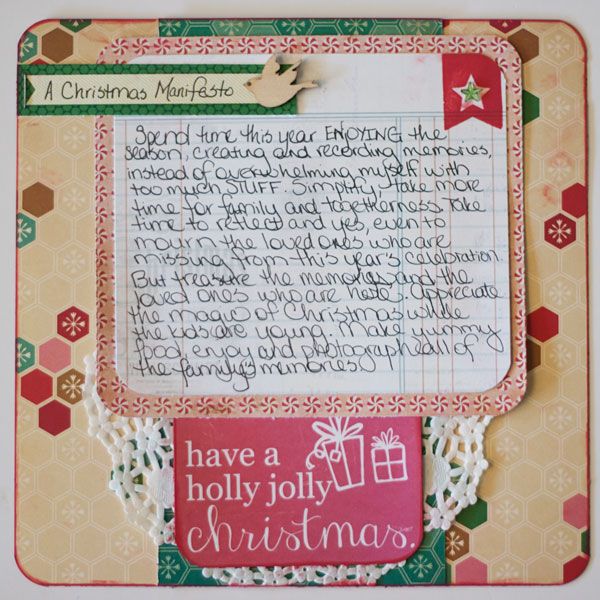 A Christmas Manifesto
Spend time this year ENJOYING the
season, creating and recording memories,
instead of overwhelming myself with
too much STUFF. Simplify! Take more
time for family and togetherness. Take
time to reflect and yes, even to
mourn the loved ones who are
missing from this year's celebration.
But treasure the memories and the
loved ones who are here. Appreciate
the magic of Christmas while
the kids are young. Make yummy
food, enjoy and photograph all of
the family's memories.
have a
holly jolly
christmas.